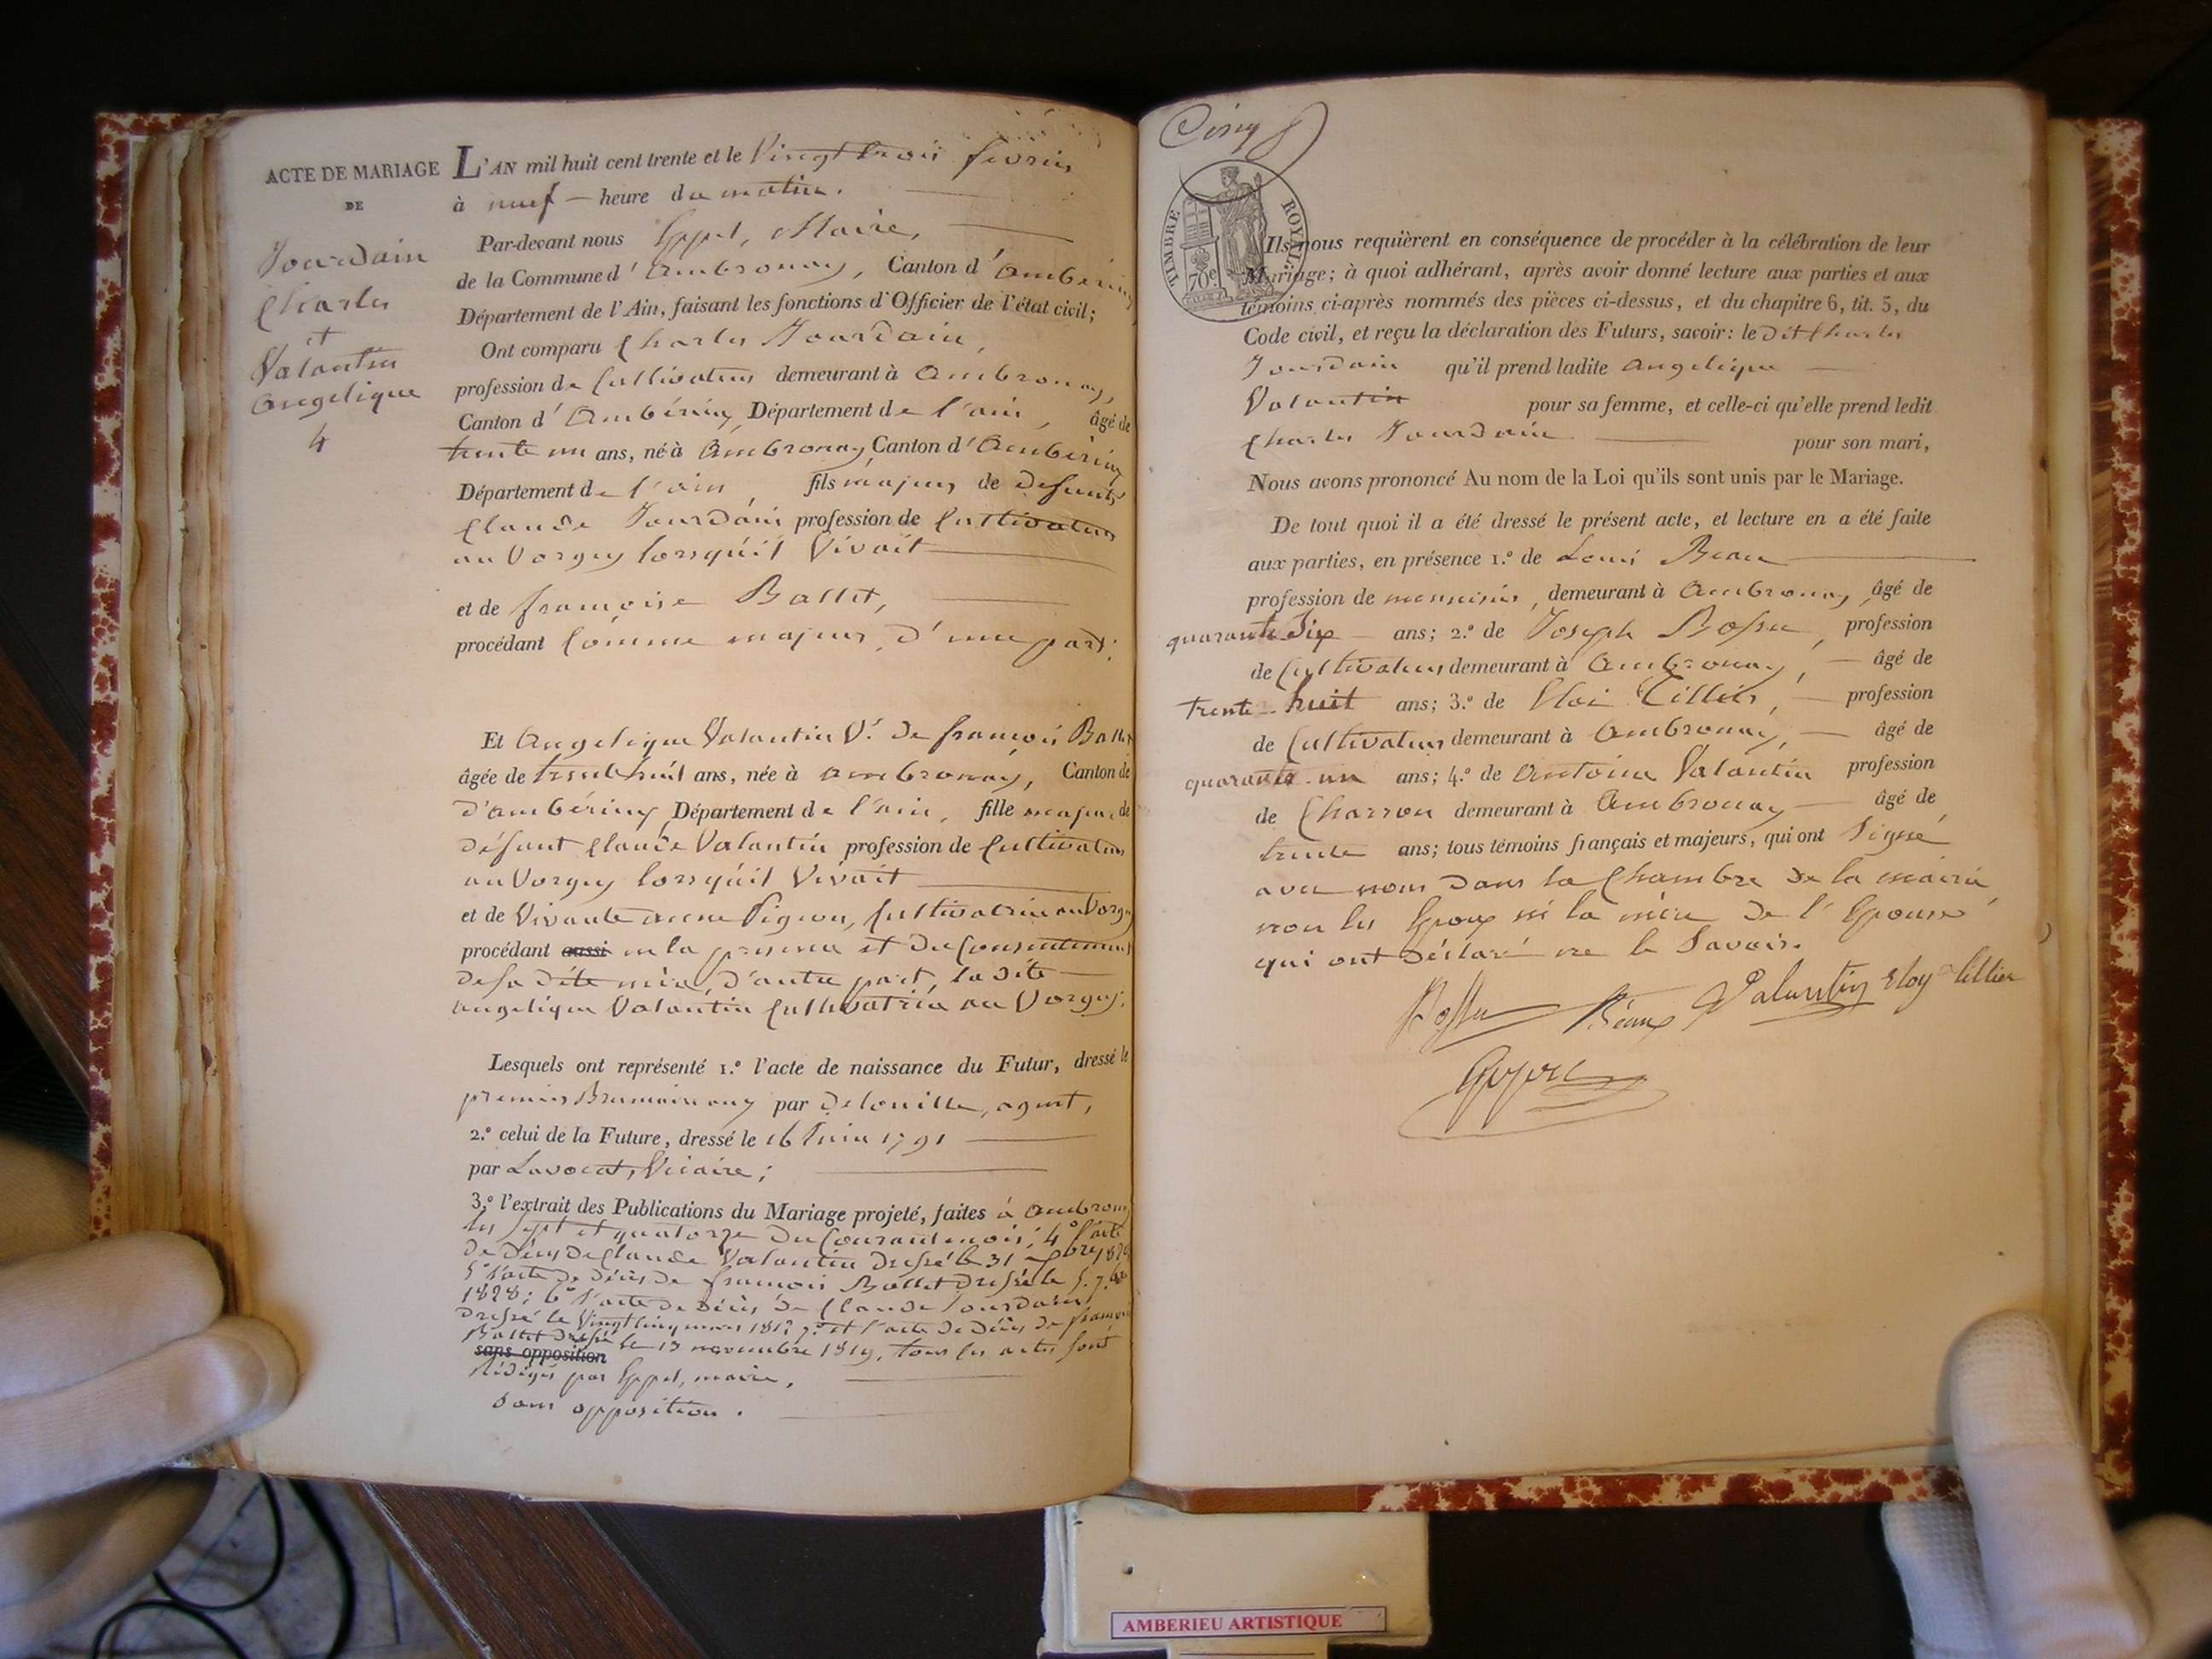 ACTE DE MARIAGE
DE
Jourdain
Charles
et
Valantin
Angelique
4
L'AN mil huit cent trente et le Vingt trois fevrier
à neuf — heure du matin.
Par-devant nous Maire,
de la Commune d' Ambronay, Canton d' Ambérieu
Département de l'Ain, faisant les fonctions d'Officier de l'état civil;
Ont comparu Charles Jourdain,
profession de Cultivateur demeurant à Ambronay,
Canton d' Ambérieu, Département de l'ain, âgé de
trente un ans, né à Ambronay Canton d' Ambérieu
Département de l'ain, fils majeur de defunt
Claude Jourdain profession de Cultivateur
au Vorgey lorsqu'il Vivait
et de francoise Ballet,
procédant Comme majeur, d'une part;
Et Angelique Valantin Vve de francois Ballet
âgée de trente huit ans, née à ambronay, Canton de
d'ambérieu Département de l'ain, fille majeure de
défunt Claude Valantin profession de Cultivateur
au Vorgey lorsqu'il Vivait
et de Vivante anne Pigeon, Cultivatrice au Vorgey
procédant aussi en la presence et du Consentement
de sa dite mère, d'autre part, la dite
angelique Valantin Cultivatrice au Vorgey.
Lesquels ont représenté 1.º l'acte de naissance du Futur, dressé le
premier Brumaire par agent,
2.º celui de la Future, dressé le 16 Juin 1791
par Lavocat, Vicaire;
3.º l'extrait des Publications du Mariage projeté, faites à Ambronay
les sept et quatorze du Courant mois; 4º l'acte
de décès de Claude Valantin dressé le 31
5º l'acte de décès de francois Ballet dressé le 5. 7.bre
1828; 6º l'acte de décès de Claude Jourdain
dressé le Vingt cinq mars et l'acte de décès de francois
Ballet dressé le 13 novembre 1819, tous les actes sont
sans opposition
rédigés par maire,
sans opposition.
Cinq
TIMBRE ROYAL
70c
Ils nous requièrent en conséquence de procéder à la célébration de leur
Mariage; à quoi adhérant, après avoir donné lecture aux parties et aux
témoins ci-après nommés des pièces ci-dessus, et du chapitre 6, tit. 5, du
Code civil, et reçu la déclaration des Futurs, savoir: le dit Charles
Jourdain qu'il prend ladite angelique
Valantin pour sa femme, et celle-ci qu'elle prend ledit
Charles Jourdain pour son mari,
Nous avons prononcé Au nom de la Loi qu'ils sont unis par le Mariage.
De tout quoi il a été dressé le présent acte, et lecture en a été faite
aux parties, en présence 1.º de Louis Beau
profession de menuisier, demeurant à Ambronay, âgé de
quarante Six ans; 2.º de Joseph Bossu, profession
de Cultivateur demeurant à Ambronay, âgé de
trente-huit ans; 3.º de Eloi Tillier, profession
de Cultivateur demeurant à Ambronay, âgé de
quarante-un ans; 4.º de Antoine Valantin profession
de Charron demeurant à Ambronay âgé de
trente ans; tous témoins français et majeurs, qui ont Signé
avec nous dans la Chambre de la mairie,
non les Epoux ni la mère de l'Epouse
qui ont déclaré ne le Savoir.
Bossu Beaux Valantin Eloy tillier